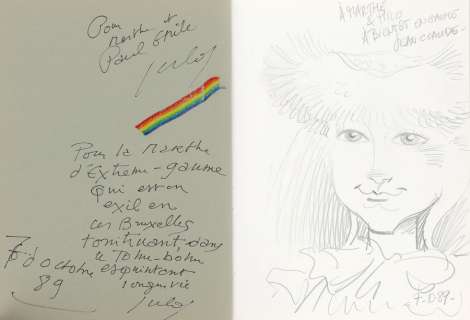 Pour
Marthe et
Paul Emile
Julos
Pour la Marthe
d'Extrême-gaume
qui est en
exil en
ces Bruxelles
tontinuant dans
le Tohu-bohu
esprintant
longue vie
Julos
7 d'Octobre
89
À MARTHE
& MILO
À BIENTÔT
JEAN CLAUDE
F.D 89-